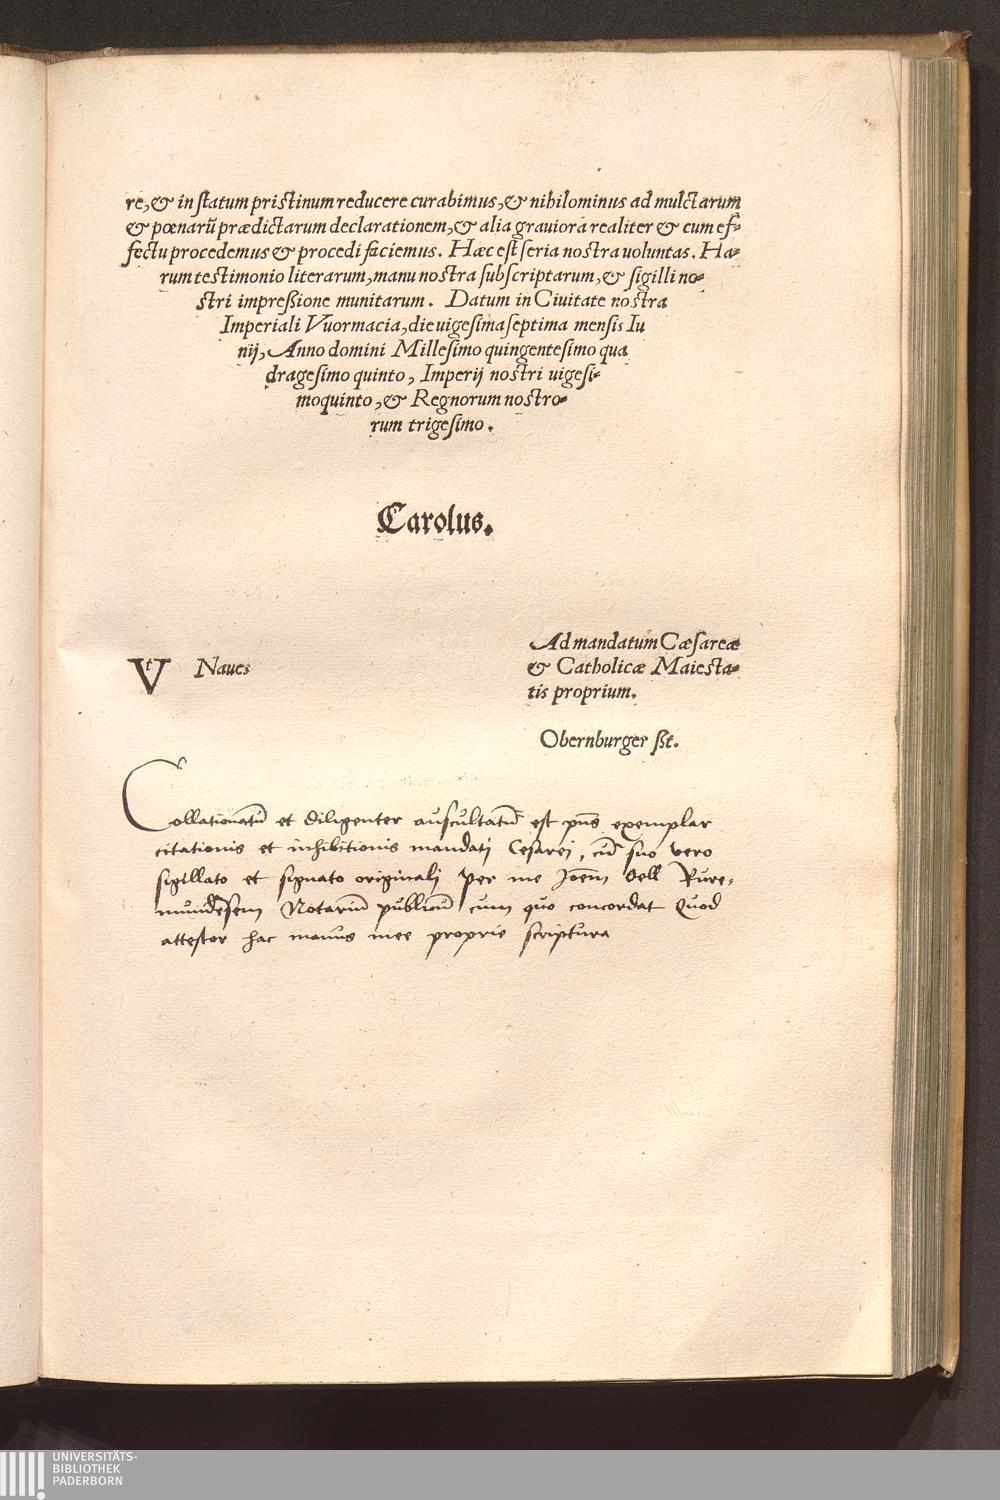 re, & in statum pristinum reducere curabimus, & nihilominus ad mulctarum
& pœnarū prædictarum declarationem, & alia grauiora realiter & cum ef-
fectu procedemus & procedi faciemus. Hæc est seria nostra voluntas. Ha-
rum testimonio literarum, manu nostra subscriptarum, & sigilli no-
stri impreßione munitarum. Datum in Ciuitate nostra
Imperiali Vuormacia, die uigesima septima mensis Iu
nij, Anno domini Millesimo quingentesimo qua
dragesimo quinto, Imperij nostri uigesi-
moquinto, & Regnorum nostro-
rum trigesimo.
Carolus.
Vt Naues
Ad mandatum Cæsareæ
& Catholicæ Maiesta-
tis proprium.
Obernburger ßt.
Collationatū et diligenter auscultatū est pn̄s exemplar
citationis et inhibitionis mandati Cesarei, cū suo vero
sigillato et signato originali per me Joēm Sell Rure-
mundēsem Notariū publicū cum quo concordat Quod
attestor hac manus mee proprie scriptura
UNIVERSITÄTS-
BIBLIOTHEK
PADERBORN